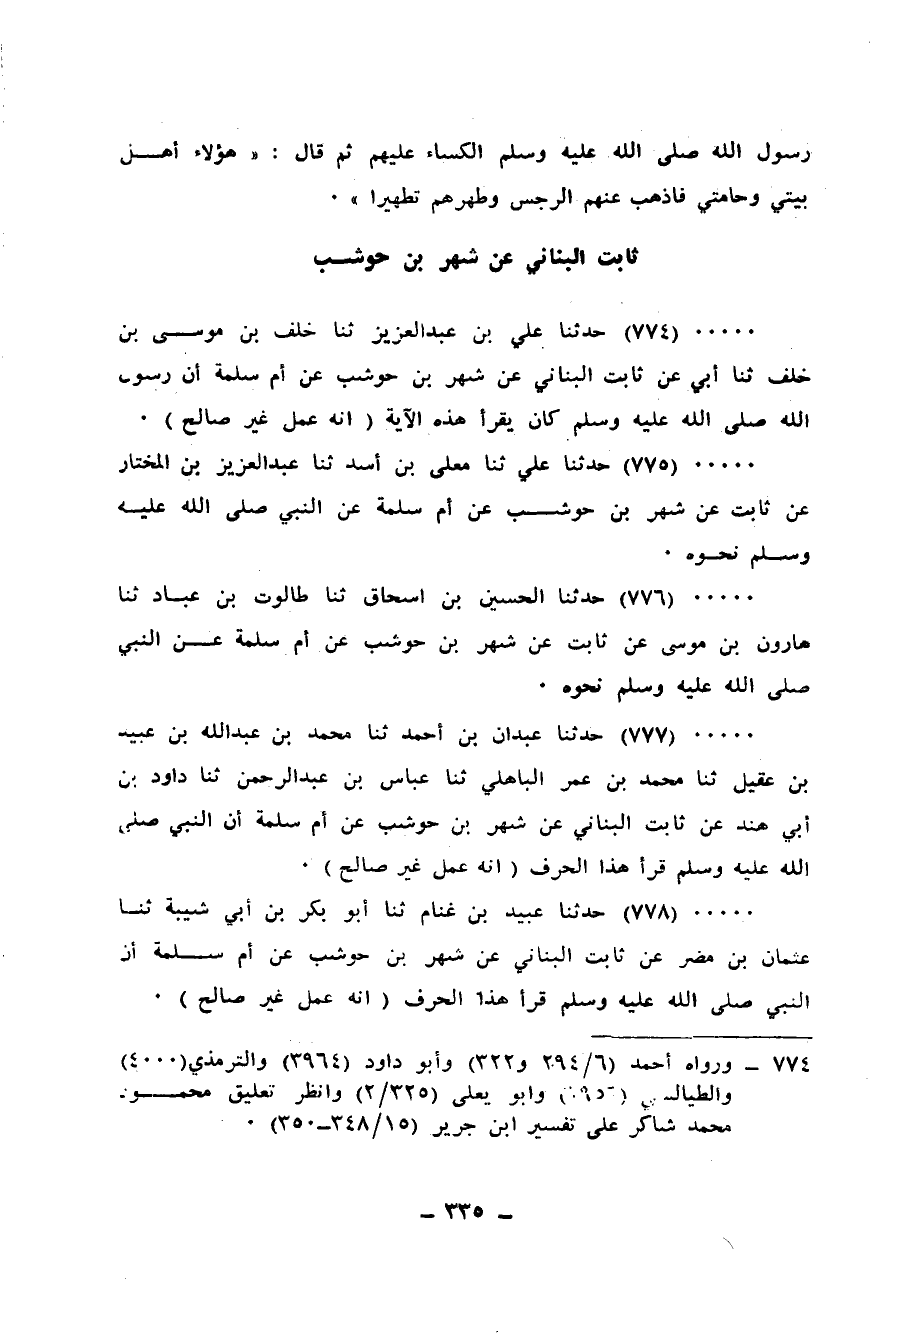 رسول الله صلى الله عليه وسلم الكساء عليهم ثم قال : « هؤلاء أهــل
بيتي وحامتي فاذهب عنهم الرجس وطهرهم تطهيرا » ٠
ثابت البناني عن شهر بن حوشــب
٠٠٠٠٠ (٧٧٤) حدثنا علي بن عبدالعزيز ثنا خلف بن موســى بن
خلف ثنا أبي عن ثابت البناني عن شهر بن حوشب عن أم سلمة أن رسول
الله صلى الله عليه وسلم كان يقرأ هذه الآية ( انه عمل غير صالح ) ٠
٠٠٠٠٠ (٧٧٥) حدثنا علي ثنا معلى بن أسد ثنا عبدالعزيز بن المختار
عن ثابت عن شهر بن حوشــب عن أم سلمة عن النبي صلى الله عليــه
وســلم نحــوه ٠
٠٠٠٠٠ (٧٧٦) حدثنا الحسين بن اسحاق ثنا طالوت بن عبــاد ثنا
هارون بن موسى عن ثابت عن شهر بن حوشب عن أم سلمة عــن النبي
صلى الله عليه وسلم نحوه ٠
٠٠٠٠٠ (٧٧٧) حدثنا عبدان بن أحمد ثنا محمد بن عبدالله بن عبيد
بن عقيل ثنا محمد بن عمر الباهلي ثنا عباس بن عبدالرحمن ثنا داود بن
أبي هند عن ثابت البناني عن شهر بن حوشب عن أم سلمة أن النبي صلى
الله عليه وسلم قرأ هذا الحرف ( انه عمل غير صالح ) ٠
٠٠٠٠٠ (٧٧٨) حدثنا عبيد بن غنام ثنا أبو بكر بن أبي شيبة ثنــا
عثمان بن مضر عن ثابت البناني عن شهر بن حوشب عن أم ســلمة أن
النبي صلى الله عليه وسلم قرأ هذا الحرف ( انه عمل غير صالح ) ٠
٧٧٤ ــ ورواه أحمد (٢٩٤/٦ و٣٢٢) وأبو داود (٣٩٦٤) والترمذي(٤٠٠٠)
وابو يعلى (٢/٣٢٥) وانظر تعليق محمــود
محمد شاكر على تفسير ابن جرير (٣٤٨/١٥ــ٣٥٠) ٠
ــ ٣٣٥ ــ